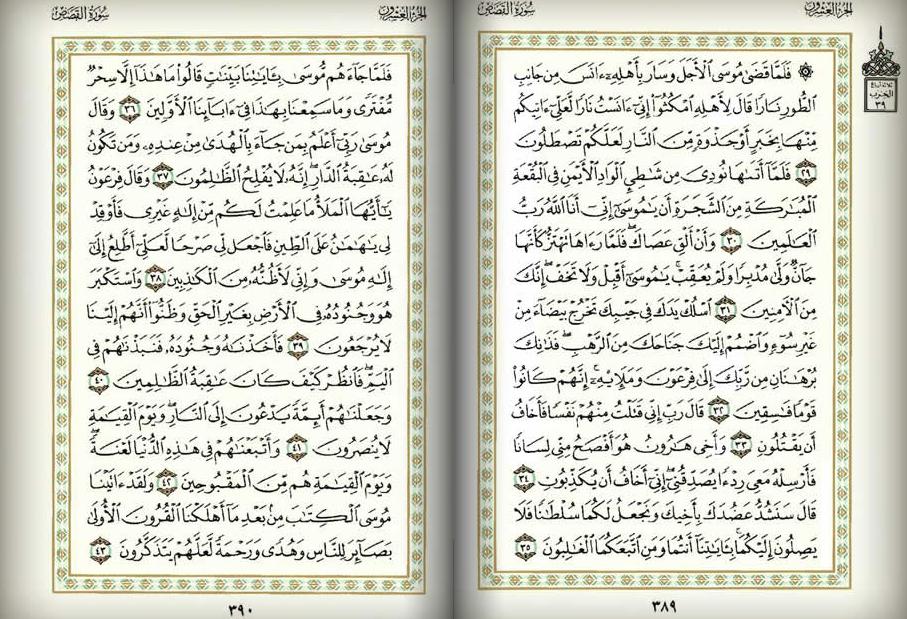 الجزء العشرون
سورة القصص
ثلاثة أرباع
الحزب
٣٩
۞ فَلَمَّا قَضَىٰ مُوسَى ٱلْأَجَلَ وَسَارَ بِأَهْلِهِۦٓ ءَانَسَ مِن جَانِبِ
ٱلطُّورِ نَارًا قَالَ لِأَهْلِهِ ٱمْكُثُوٓا۟ إِنِّىٓ ءَانَسْتُ نَارًا لَّعَلِّىٓ ءَاتِيكُم
مِّنْهَا بِخَبَرٍ أَوْ جَذْوَةٍ مِّنَ ٱلنَّارِ لَعَلَّكُمْ تَصْطَلُونَ
٢٩ فَلَمَّآ أَتَىٰهَا نُودِىَ مِن شَٰطِئِ ٱلْوَادِ ٱلْأَيْمَنِ فِى ٱلْبُقْعَةِ
ٱلْمُبَٰرَكَةِ مِنَ ٱلشَّجَرَةِ أَن يَٰمُوسَىٰٓ إِنِّىٓ أَنَا ٱللَّهُ رَبُّ
ٱلْعَٰلَمِينَ ٣٠ وَأَنْ أَلْقِ عَصَاكَ ۖ فَلَمَّا رَءَاهَا تَهْتَزُّ كَأَنَّهَا
جَآنٌّ وَلَّىٰ مُدْبِرًا وَلَمْ يُعَقِّبْ ۚ يَٰمُوسَىٰٓ أَقْبِلْ وَلَا تَخَفْ ۖ إِنَّكَ
مِنَ ٱلْءَامِنِينَ ٣١ ٱسْلُكْ يَدَكَ فِى جَيْبِكَ تَخْرُجْ بَيْضَآءَ مِنْ
غَيْرِ سُوٓءٍ وَٱضْمُمْ إِلَيْكَ جَنَاحَكَ مِنَ ٱلرَّهْبِ ۖ فَذَٰنِكَ
بُرْهَٰنَانِ مِن رَّبِّكَ إِلَىٰ فِرْعَوْنَ وَمَلَإِي۟هِۦٓ ۚ إِنَّهُمْ كَانُوا۟
قَوْمًا فَٰسِقِينَ ٣٢ قَالَ رَبِّ إِنِّى قَتَلْتُ مِنْهُمْ نَفْسًا فَأَخَافُ
أَن يَقْتُلُونِ ٣٣ وَأَخِى هَٰرُونُ هُوَ أَفْصَحُ مِنِّى لِسَانًا
فَأَرْسِلْهُ مَعِىَ رِدْءًا يُصَدِّقُنِىٓ ۖ إِنِّىٓ أَخَافُ أَن يُكَذِّبُونِ ٣٤
قَالَ سَنَشُدُّ عَضُدَكَ بِأَخِيكَ وَنَجْعَلُ لَكُمَا سُلْطَٰنًا فَلَا
يَصِلُونَ إِلَيْكُمَا ۚ بِـَٔايَٰتِنَآ أَنتُمَا وَمَنِ ٱتَّبَعَكُمَا ٱلْغَٰلِبُونَ ٣٥
٣٨٩
الجزء العشرون
سورة القصص
فَلَمَّا جَآءَهُم مُّوسَىٰ بِـَٔايَٰتِنَا بَيِّنَٰتٍ قَالُوا۟ مَا هَٰذَآ إِلَّا سِحْرٌ
مُّفْتَرًى وَمَا سَمِعْنَا بِهَٰذَا فِىٓ ءَابَآئِنَا ٱلْأَوَّلِينَ ٣٦ وَقَالَ
مُوسَىٰ رَبِّىٓ أَعْلَمُ بِمَن جَآءَ بِٱلْهُدَىٰ مِنْ عِندِهِۦ وَمَن تَكُونُ
لَهُۥ عَٰقِبَةُ ٱلدَّارِ ۖ إِنَّهُۥ لَا يُفْلِحُ ٱلظَّٰلِمُونَ ٣٧ وَقَالَ فِرْعَوْنُ
يَٰٓأَيُّهَا ٱلْمَلَأُ مَا عَلِمْتُ لَكُم مِّنْ إِلَٰهٍ غَيْرِى فَأَوْقِدْ
لِى يَٰهَٰمَٰنُ عَلَى ٱلطِّينِ فَٱجْعَل لِّى صَرْحًا لَّعَلِّىٓ أَطَّلِعُ إِلَىٰٓ
إِلَٰهِ مُوسَىٰ وَإِنِّى لَأَظُنُّهُۥ مِنَ ٱلْكَٰذِبِينَ ٣٨ وَٱسْتَكْبَرَ
هُوَ وَجُنُودُهُۥ فِى ٱلْأَرْضِ بِغَيْرِ ٱلْحَقِّ وَظَنُّوٓا۟ أَنَّهُمْ إِلَيْنَا
لَا يُرْجَعُونَ ٣٩ فَأَخَذْنَٰهُ وَجُنُودَهُۥ فَنَبَذْنَٰهُمْ فِى
ٱلْيَمِّ ۖ فَٱنظُرْ كَيْفَ كَانَ عَٰقِبَةُ ٱلظَّٰلِمِينَ ٤٠
وَجَعَلْنَٰهُمْ أَئِمَّةً يَدْعُونَ إِلَى ٱلنَّارِ ۖ وَيَوْمَ ٱلْقِيَٰمَةِ
لَا يُنصَرُونَ ٤١ وَأَتْبَعْنَٰهُمْ فِى هَٰذِهِ ٱلدُّنْيَا لَعْنَةً ۖ
وَيَوْمَ ٱلْقِيَٰمَةِ هُم مِّنَ ٱلْمَقْبُوحِينَ ٤٢ وَلَقَدْ ءَاتَيْنَا
مُوسَى ٱلْكِتَٰبَ مِنۢ بَعْدِ مَآ أَهْلَكْنَا ٱلْقُرُونَ ٱلْأُولَىٰ
بَصَآئِرَ لِلنَّاسِ وَهُدًى وَرَحْمَةً لَّعَلَّهُمْ يَتَذَكَّرُونَ ٤٣
٣٩٠